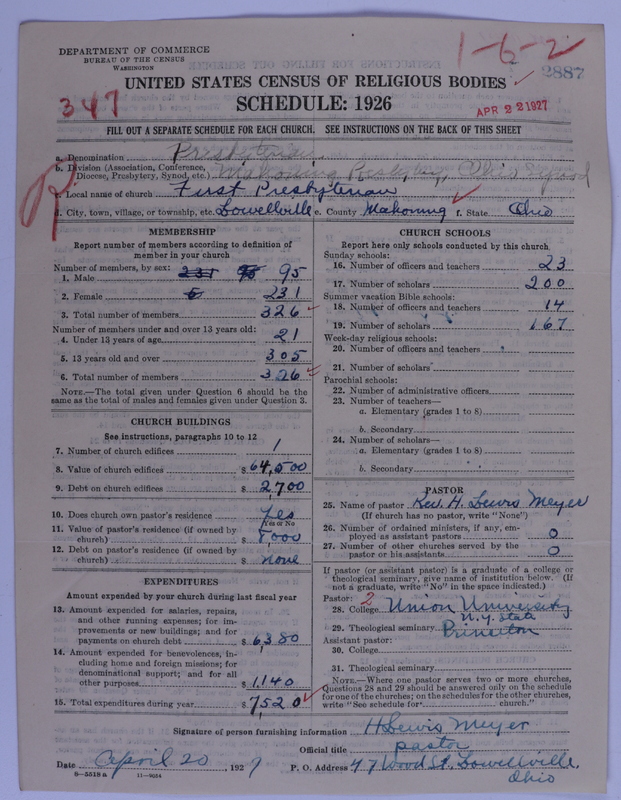 DEPARTMENT OF COMMERCE
BUREAU OF THE CENSUS
WASHINGTON
1-6-2
2887
UNITED STATES CENSUS OF RELIGIOUS BODIES
347
SCHEDULE: 1926
APR 22 1927
FILL OUT A SEPARATE SCHEDULE FOR EACH CHURCH. SEE INSTRUCTIONS ON THE BACK OF THIS SHEET
a. Denomination Presbyterian
b. Division (Association, Conference, Diocese, Presbytery, Synod, etc.) Mahoning Presbytery, Ohio Synod
c. Local name of church First Presbyterian
d. City, town, village, or township, etc. Lowellville e. County Mahoning f. State Ohio
MEMBERSHIP
Report number of members according to definition of
member in your church
Number of members, by sex:
1. Male 231 95 95
2. Female 231
3. Total number of members 326
Number of members under and over 13 years old:
4. Under 13 years of age 21
5. 13 years old and over 305
6. Total number of members 326
NOTE.—The total given under Question 6 should be
same as the total of males and females given under Question 3.
CHURCH BUILDINGS
See instructions, paragraphs 10 to 12
7. Number of church edifices 1
8. Value of church edifices $ 64,500
9. Debt on church edifices $ 2,700
10. Does church own pastor's residence yes
Yes or No
11. Value of pastor's residence (if owned by
church) $ 8,000
12. Debt on pastor's residence (if owned by
church) $ none
EXPENDITURES
Amount expended by your church during last fiscal year
13. Amount expended for salaries, repairs,
and other running expenses; for im-
provements or new buildings; and for
payments on church debt $ 6380
14. Amount expended for benevolences, in-
cluding home and foreign missions; for
denominational support; and for all
other purposes $ 1,140
15. Total expenditures during year $ 7,520
CHURCH SCHOOLS
Report here only schools conducted by this church
Sunday schools:
16. Number of officers and teachers 23
17. Number of scholars 200
Summer vacation Bible schools:
18. Number of officers and teachers 14
19. Number of scholars 167
Week-day religious schools:
20. Number of officers and teachers
21. Number of scholars
Parochial schools:
22. Number of administrative officers
23. Number of teachers—
a. Elementary (grades 1 to 8)
b. Secondary
24. Number of scholars—
a. Elementary (grades 1 to 8)
b. Secondary
PASTOR
25. Name of pastor Rev. H. Lewis Meyer
(If church has no pastor, write "None")
26. Number of ordained ministers, if any, em-
ployed as assistant pastors 0
27. Number of other churches served by the
pastor or his assistants 0
If pastor (or assistant pastor) is a graduate of a college or
theological seminary, give name of institution below. (If
not a graduate, write "No" in the space indicated.)
Pastor: 2
28. College Union University
N.Y. State
29. Theological seminary Princeton
Assistant pastor:
30. College
31. Theological seminary
NOTE.—Where one pastor serves two or more churches,
Questions 28 and 29 should be answered only on the schedule
for one of the churches; on the schedules for the other churches,
write "See schedule for church."
Signature of person furnishing information H Lewis Meyer
Official title pastor
Date April 20, 1927 P. O. Address 47 Wood St. Lowellville,
Ohio
8-5518 a 11-9054